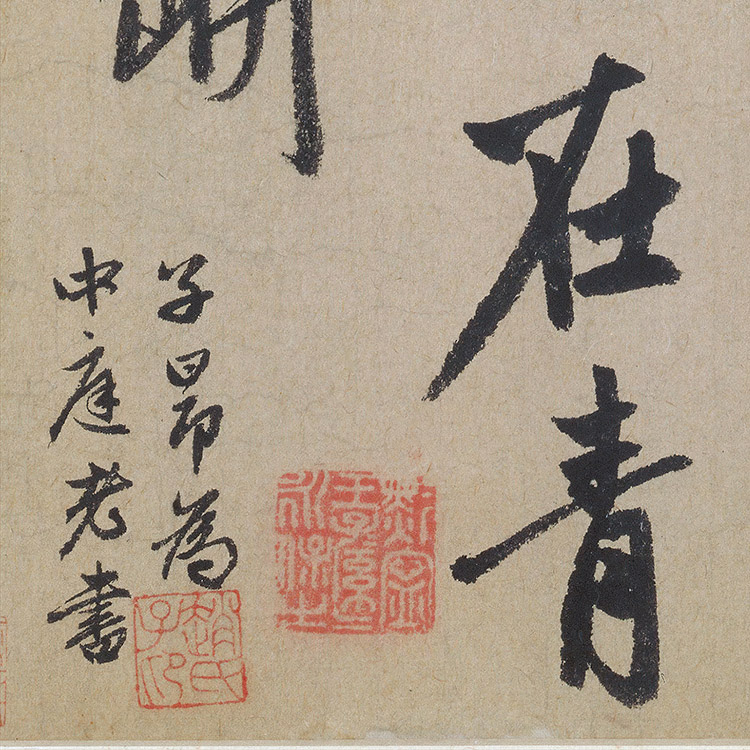 在青
子昂為
中庭老書
趙氏
子昂